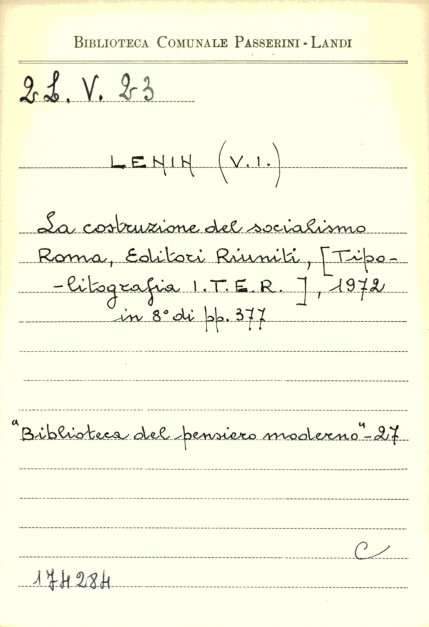 BIBLIOTECA COMUNALE PASSERINI - LANDI
2L. V. 23
LENIN (V.I.)
La costruzione del socialismo
Roma, Editori Riuniti, [Tipo-
-litografia I.T.E.R. ], 1972
in 8° di pp. 377
"Biblioteca del pensiero moderno"-27
C
174284